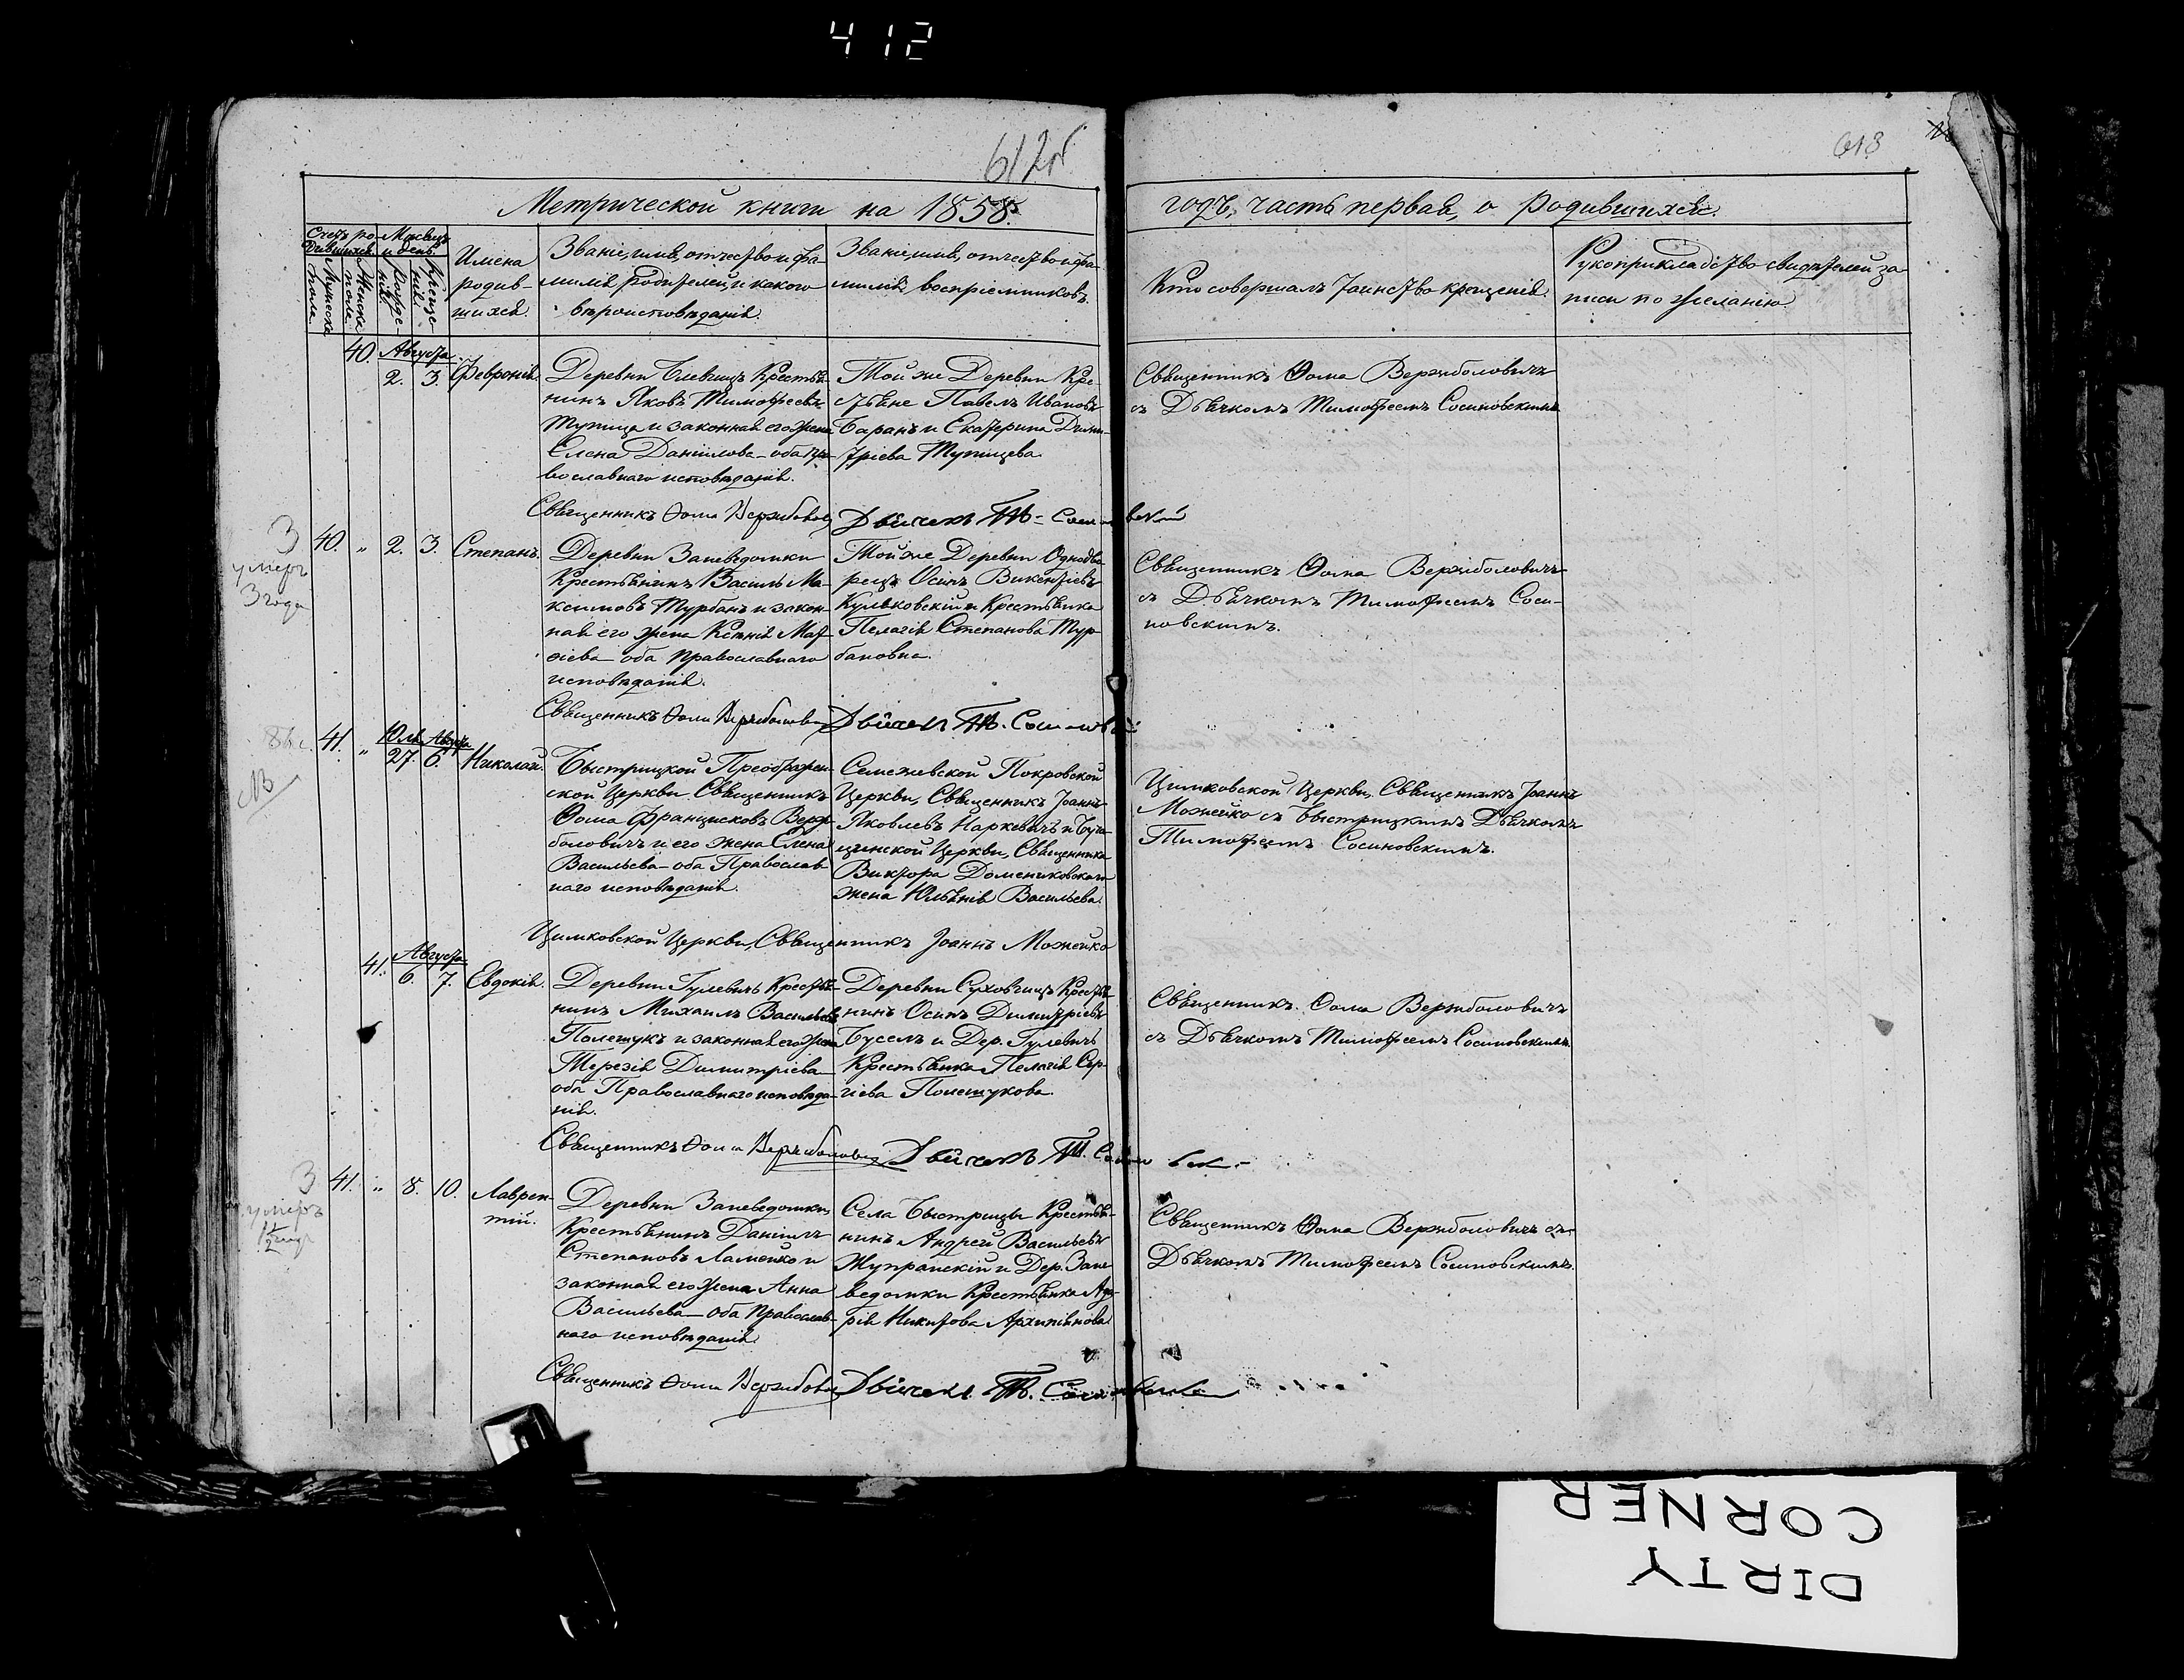 412
612
613
Метрической книги на 1858.
годъ, часть первая, о родившихся.
Счетъ ро-
дившихся.
Мужеска
пола.
Женска
пола.
Месяцъ
и день.
Рожде-
нія
Креще-
нія
Имена
родив-
шихся.
Званіе, имя, отчество и фа-
милія родителей и какого
вѣроисповѣданія.
Званіе, имя, отчество и фа-
милія воспріемниковъ.
Кто совершалъ таинство крещенія.
Рукоприкладство свидѣтелей за-
писи по желанію.
40.
Августа
2. 3.
Февронія.
Деревни Блевчицъ Крестья-
нинъ Яковъ Тимофеевъ
Тупица и законная его жена
Елена Даніилова - оба пра-
вославнаго исповѣданія.
Той же Деревни Кре-
стьяне Павелъ Ивановъ
Баранъ и Екатерина Дими-
тріева Тупицева.
Священникъ Ѳома Вержболовичъ
съ Дьячкомъ Тимофеемъ Сосиновскимъ.
Священникъ Ѳома Вержболович Дьячекъ Т. Сосиновский
3
умеръ
3 года
40. " 2. 3. Степанъ.
Деревни Заневедомки
Крестьянинъ Василь Ма-
ксимовъ Турбанъ и закон-
ная его жена Ксенія Мат-
ѳіева оба православнаго
исповѣданія.
Той же Деревни Однодво-
рецъ Осипъ Викентіевъ
Кульковскій и Крестьянка
Пелагія Степанова Тур-
бановна.
Священникъ Ѳома Вержболовичъ
съ Дьячкомъ Тимофеемъ Соси-
новскимъ.
Священникъ Ѳома Вержболович Дьячекъ Т. Сосиновский
41. "
Юля Августа
27. 6.
Николай.
Быстрицкой Преображен-
ской Церкви Священникъ
Ѳома Францисковъ Верж-
боловичъ и его жена Елена
Васильева - оба Православ-
наго исповѣданія.
Семежевской Покровской
Церкви, Священникъ Іоаннъ
Яковлевъ Наркевичъ и
Церкви, Священника
Виктора Домениковскаго
жена Юльянія Васильева.
Цимковской Церкви, Священникъ Іоаннъ
Можейко съ Быстрицкимъ Дьячкомъ
Тимофеемъ Сосиновскимъ.
Цимковской Церкви, Священникъ Іоаннъ Можейко
41.
Августа
6. 7.
Евдокія.
Деревни Гулевичъ Крестья-
нинъ Михаилъ Васильевъ
Полешукъ и законная его жена
Терезія Димитріева
оба Православнаго исповѣда-
нія.
Деревни Суховчицъ Крестья-
нинъ Осипъ Димитріевъ
Буселъ и Дер. Гулевичъ
Крестьянка Пелагія Сер-
гіева Полешукова.
Священникъ Ѳома Вержболовичъ
съ Дьячкомъ Тимофеемъ Сосиновскимъ.
Священникъ Ѳома Вержболович Дьячекъ Т.
3
умеръ
1/2 года
41. " 8. 10. Лаврен-
тій.
Деревни Заневедомки
Крестьянинъ Даніилъ
Степановъ Ламейко и
законная его жена Анна
Васильева - оба Православ-
наго исповѣданія.
Села Быстрицы Крестья-
нинъ Андрей Васильевъ
Жупранскій и Дер. Зане-
ведомки Крестьянка
Никитова Архипіянова.
Священникъ Ѳома Вержболовичъ съ
Дьячкомъ Тимофеемъ Сосиновскимъ.
Священникъ Ѳома Вержболович Дьячекъ Т. Сосиновский
DIRTY
CORNER